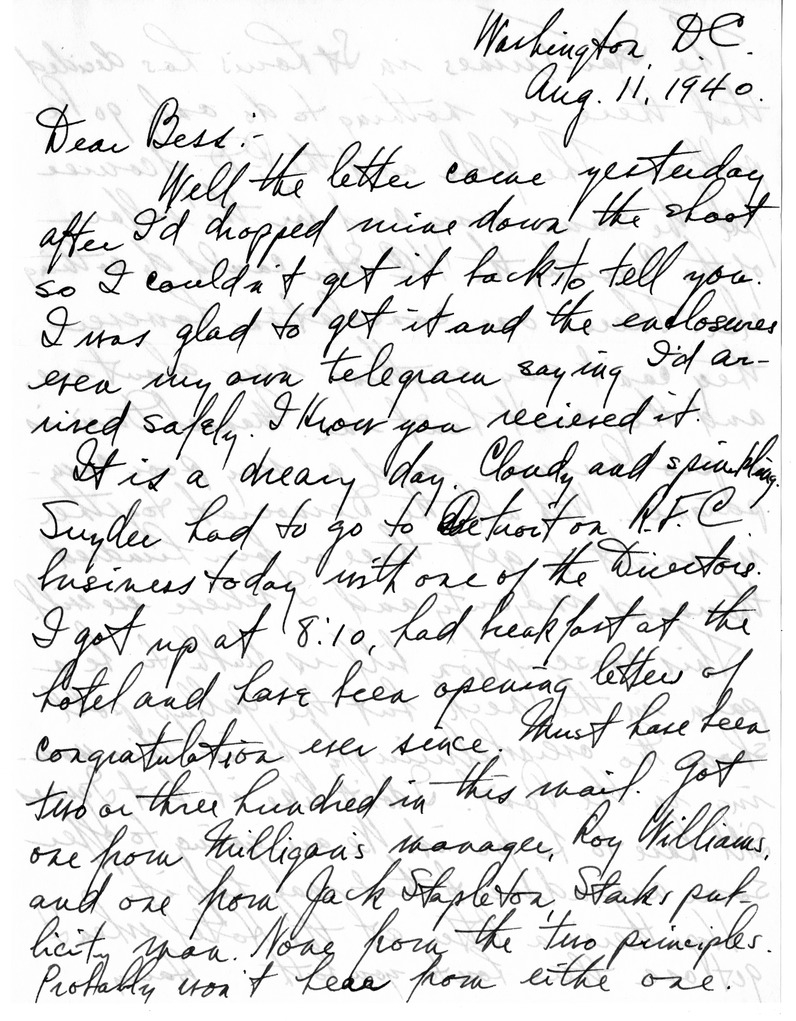 Washington, D.C.
Aug. 11, 1940.
Dear Bess:-
Well the letter came yesterday
after I'd dropped mine down the shoot
so I couldn't get it back to tell you.
I was glad to get it and the enclosures
even my own telegram saying I'd ar-
rived safely. I know you recieved it.
It is a dreary day. Cloudy and sprinkling.
Snyder had to go to Detroit on R.F.C
business today with one of the Directors.
I got up at 8:10, had breakfast at the
hotel and have been opening letters of
congratulation ever since. Must have been
two or three hundred in this mail. Got
one from Milligan's manager, Roy Williams,
and one from Jack Stapleton, Starks pub-
licity man. None from the two principles.
Probably won't hear from eithe one.